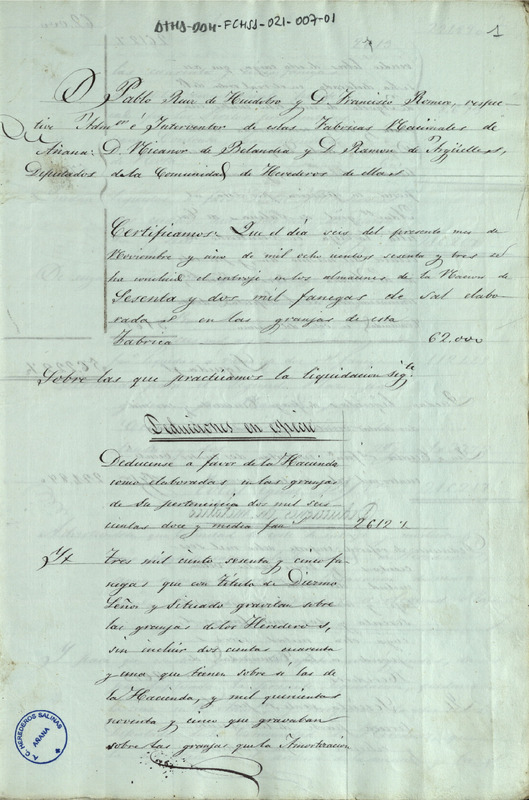 ATHA-DOH-FCHSS-021-007-01
1
D. Pablo Ruiz de Huidobro y D. Francisco Romero, respec-
tive Admor é Interventor de estas Fabricas Nacionales de
Añana: D. Nicanor de Belandia y D. Ramon de Argüelles,
Diputados de la Comunidad de Herederos de ellas
Certificamos: Que el dia seis del presente mes de
Noviembre y año de mil ocho cientos sesenta y tres se
ha concluido el entroje en los almacenes de la Nacion de
Sesenta y dos mil fanegas de sal elabo-
radas en las granjas de esta
Fabrica 62.000
Sobre las que practicamos la liquidacion sigte
Deducciones en especie
Deducense á favor de la Hacienda
como elaboradas en las granjas
de su pertenencia dos mil seis
cientas doce y media fans 2612 ½
Yt Tres mil ciento sesenta y cinco fa-
negas que con titulo de Diezmo
Leña y Situado gravitan sobre
las granjas de los Herederos,
sin incluir dos cientas cuarenta
y una que tienen sobre sí las de
la Hacienda, y mil quinientas
noventa y cinco que gravaban
sobre las granjas que la Amortizacion
A. C. HEREDEROS SALINAS
AÑANA